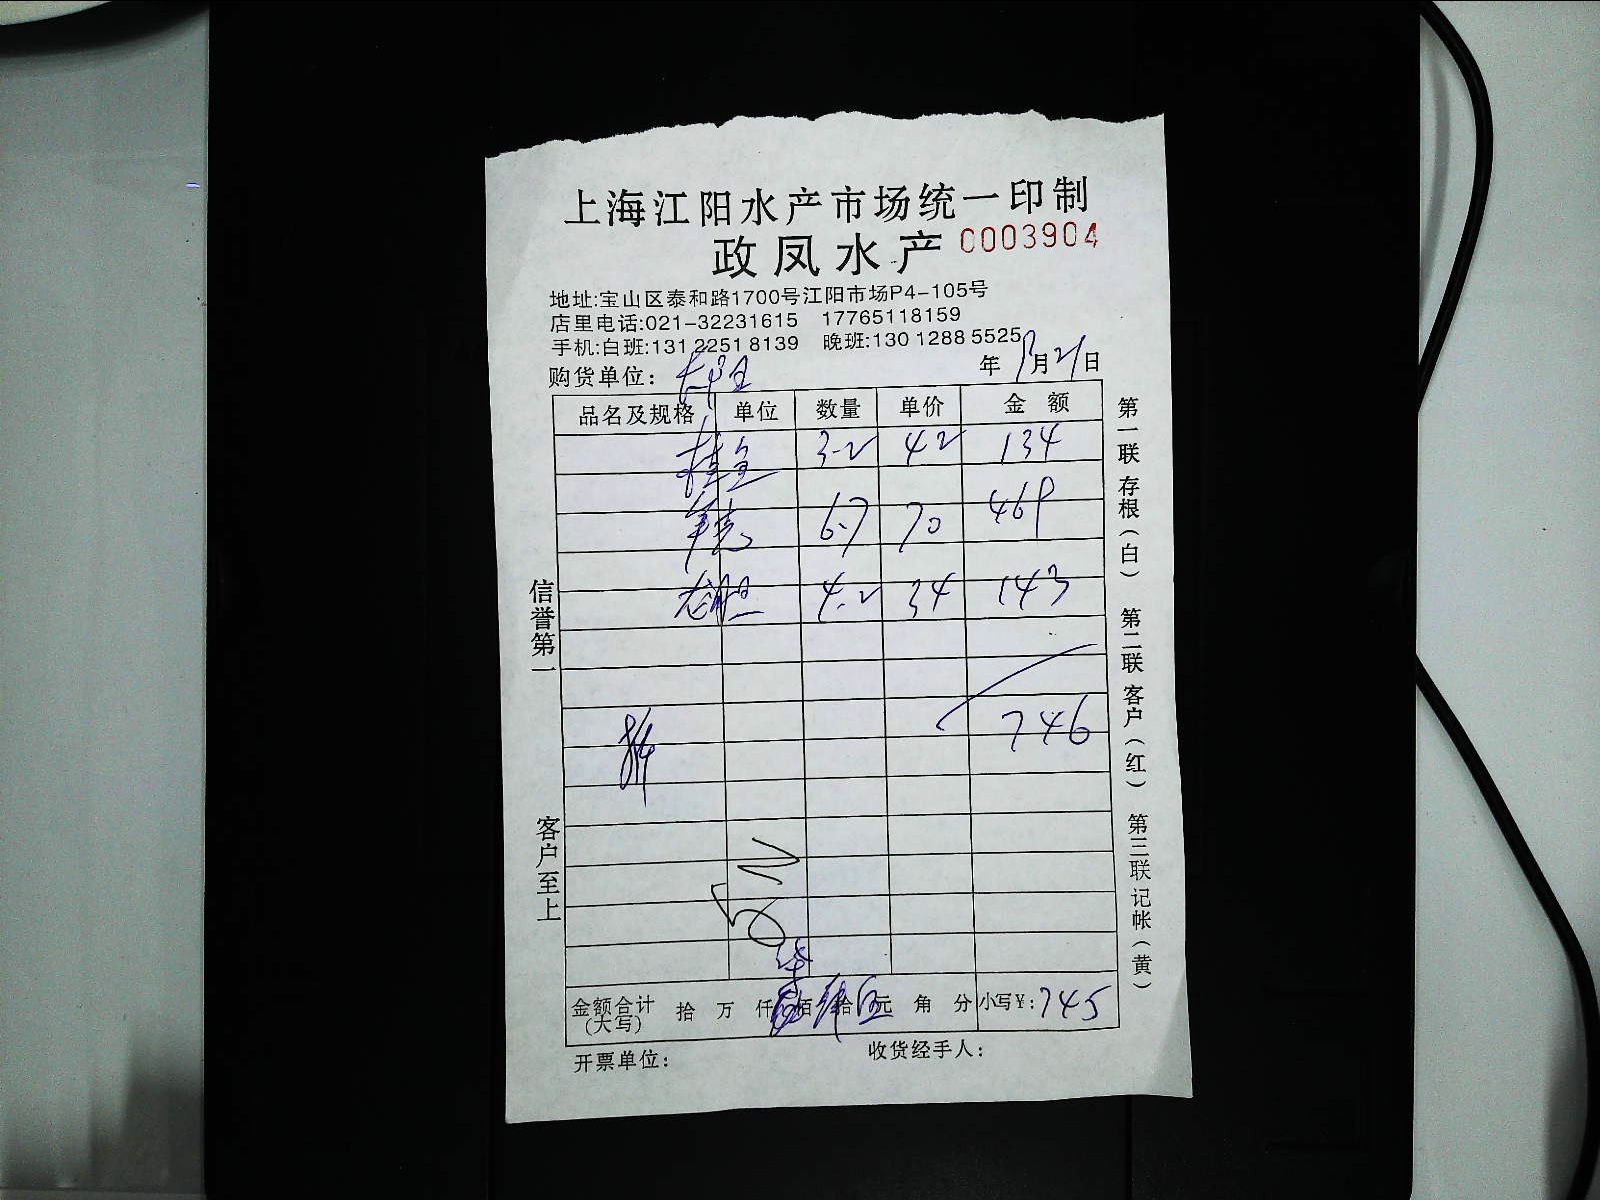 上海江阳水产市场统一印制
政凤水产 0003904
地址:宝山区泰和路1700号江阳市场P4-105号
店里电话:021-32231615 17765118159
手机:白班:131 2251 8139 晚班:130 1288 5525
购货单位: 年 月 21 日
品名及规格 单位 数量 单价 金额
桂鱼 3.2 42 134
6.7 70 469
4.2 34 143
746
金额合计(大写) 拾 万 仟 佰 拾 元 角 分 小写¥: 745
开票单位: 收货经手人:
信誉第一
客户至上
第一联 存根(白) 第二联 客户(红) 第三联 记帐(黄)